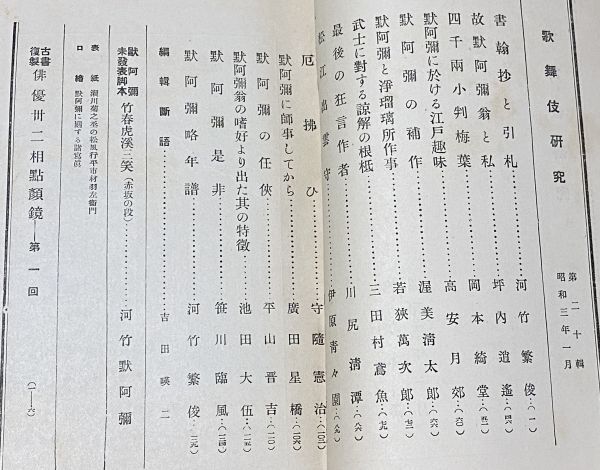 歌舞伎研究
第二十輯
昭和三年一月
書翰抄と引札……河竹繁俊…(一)
故默阿彌翁と私……坪內逍遙…(四六)
四千兩小判梅葉……岡本綺堂…(五一)
默阿彌に於ける江戶趣味……高安月郊…(六〇)
默阿彌の補作……渥美淸太郞…(六六)
默阿彌と淨瑠璃所作事……若狹萬次郞…(七三)
武士に對する諒解の根柢……三田村鳶魚…(七九)
最後の狂言作者……川尻淸潭…(八六)
松江出雲守……伊原靑々園…(八九)
厄拂ひ……守隨憲治…(一〇一)
默阿彌に師事してから……廣田星橋…(一〇六)
默阿彌の任俠……平山晋吉…(一一〇)
默阿彌翁の嗜好より出た其の特徵……池田大伍…(一一五)
默阿彌是非……笹川臨風…(一二四)
默阿彌略年譜……河竹繁俊…(一二九)
編輯斷語……吉田暎二
默阿彌未發表脚本 竹春虎溪三笑(赤坂の段)……河竹默阿彌
表紙 瀨川菊之丞の松風行平市村羽左衞門
口繪 默阿彌に關する諸寫眞
古書複製 俳優卅二相點顏鏡——第一回 (一—六)